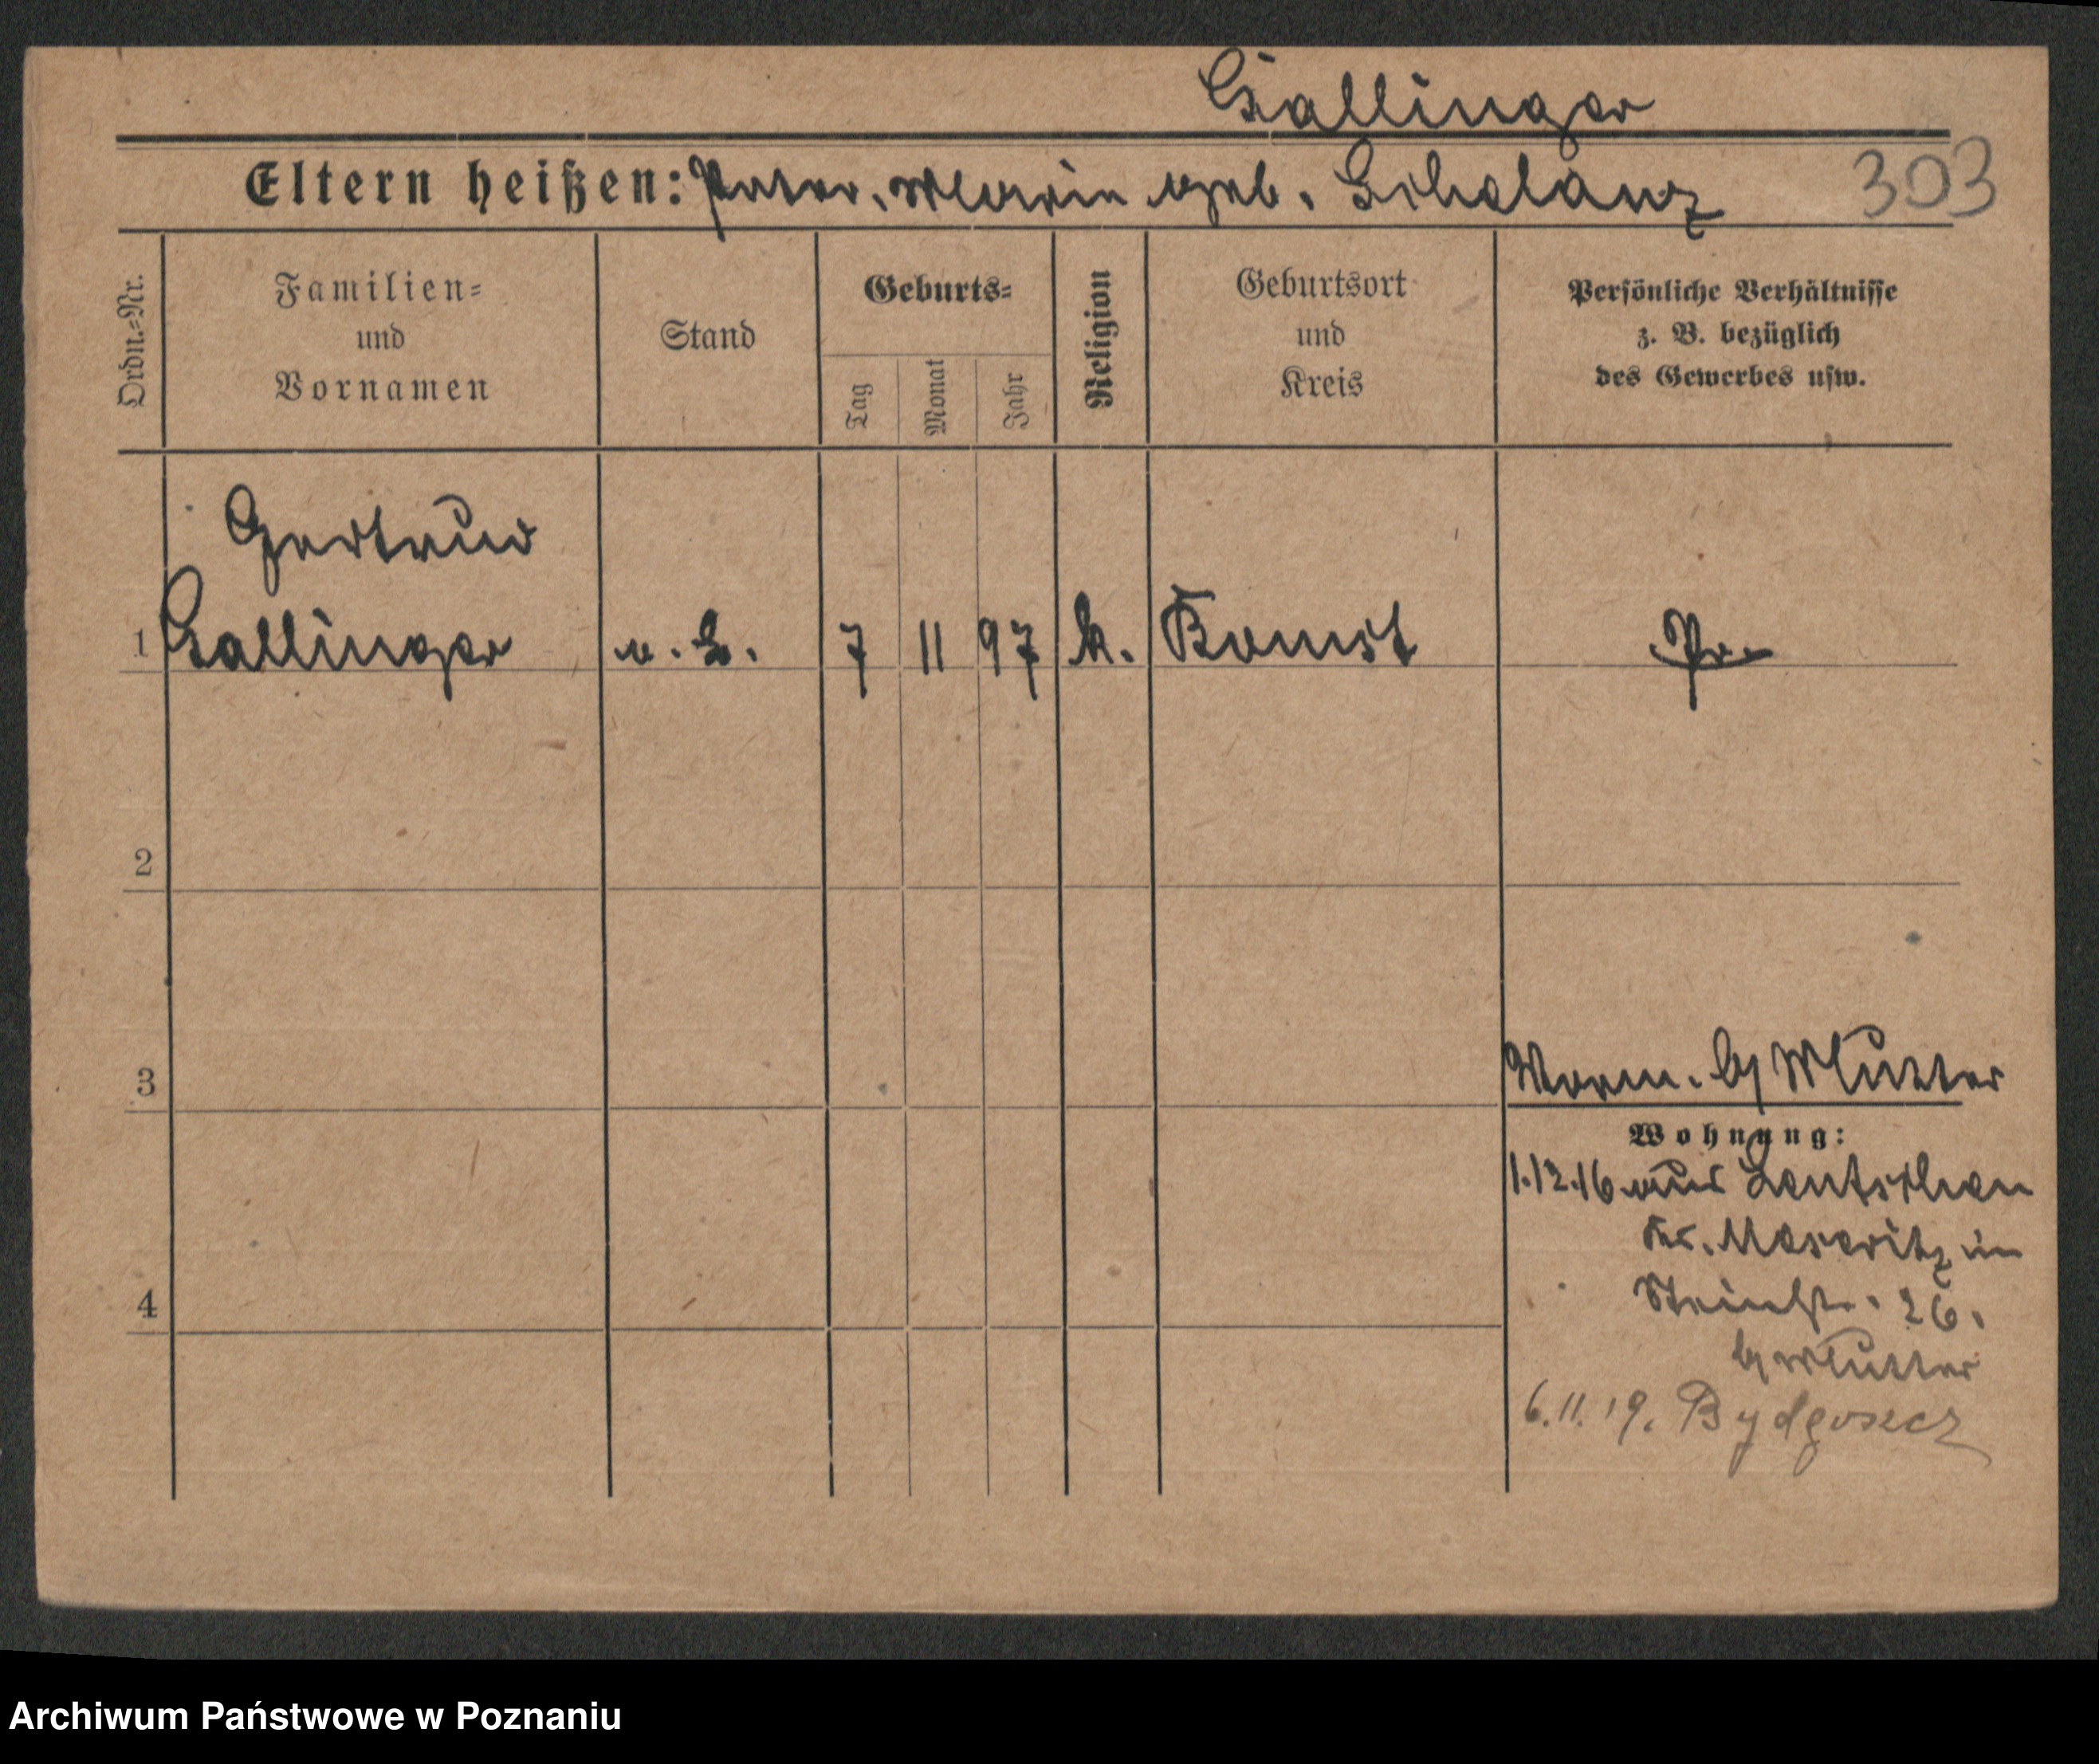 Gallinger
Eltern heißen: Peter, Marie geb. Schulanz 303
Ordn.=Nr.
Familien=
und
Vornamen
Stand
Geburts=
Tag
Monat
Jahr
Religion
Geburtsort
und
Kreis
Persönliche Verhältnisse
z. B. bezüglich
des Gewerbes usw.
Gertrud
1 Gallinger o. B. 7 11 97 k. Bomst Pr.
2
3
Worm. b/ Mutter
Wohnung:
1.12.16 aus Bentschen
Krs. Meseritz in
4
Steinstr. 26.
b/ Mutter
6.11.19. Bydgoszcz
Archiwum Państwowe w Poznaniu